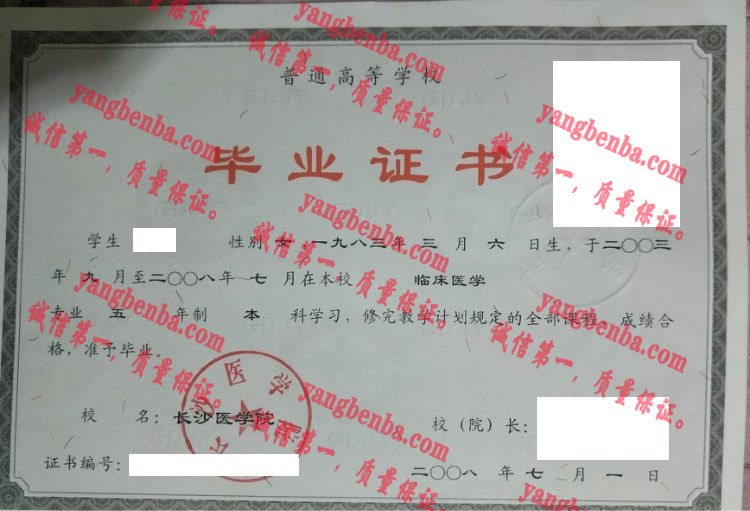 普通高等学校
毕业证书
学生 性别 女,一九八三年 三 月 六 日生,于二〇〇三
年 九 月至二〇〇八年 七 月在本校 临床医学
专业 五 年制 本 科学习,修完教学计划规定的全部课程,成绩合
格,准予毕业。
校 名:长沙医学院 校(院)长:
证书编号: 二〇〇八 年 七 月 一 日
yangbenba.com
诚信第一,质量保证。
yangbenba.com
诚信第一,质量保证。
yangbenba.com
诚信第一,质量保证。
yangbenba.com
诚信第一,质量保证。
yangbenba.com
诚信第一,质量保证。
yangbenba.com
诚信第一,质量保证。
yangbenba.com
诚信第一,质量保证。
yangbenba.com
诚信第一,质量保证。
yangbenba.com
yangbenba.com